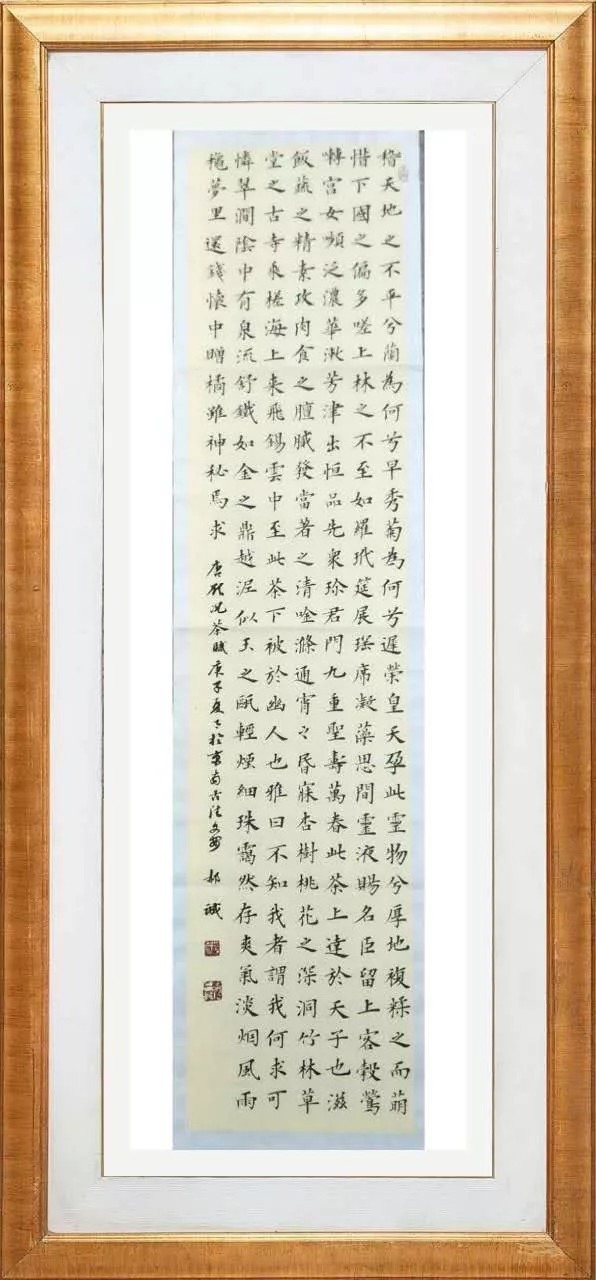 稽天地之不平兮蘭為何兮早秀菊為何兮遲榮皇天孕此靈物兮厚地複糅之而萌
惜下國之偏多嗟上林之不至如羅玳筵展瑤席凝藻思間靈液賜名臣留上客轂鶯
囀宮女嚬泛濃華漱芳津出恒品先衆珍君門九重聖壽萬春此茶上達於天子也滋
飯蔬之精素攻肉食之膻膩發當著之清唫滌通宵之昏寐杏樹桃花之深洞竹林草
堂之古寺乘槎海上來飛錫雲中至此茶下被於幽人也雅曰不知我者謂我何求可
憐翠澗陰中有泉流舒鐵如金之鼎越泥似玉之甌輕煙細珠靄然存爽氣淡烟風雨
夢里還錢懷中贈橘雖神秘焉求 唐顧況茶賦庚子夏於京南古法 郝誠